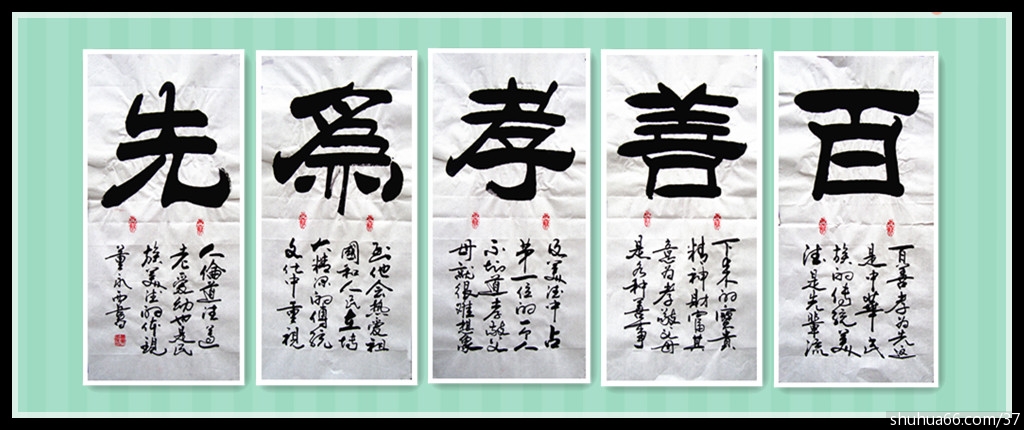 百
百善孝为先这
是中華民
族的传统美
德是先辈流
善
下来的寶貴
精神财富其
意为孝敬父母
是各种善事
孝
这美德中占
第一位的一个人
不知道孝敬父
母就很难想象
為
到他会热爱祖
國和人民在博
大精深的傳統
文化中重視
先
人倫道德尊
老爱幼也是民
族美德的体现
董永書
shuhua66.com/37